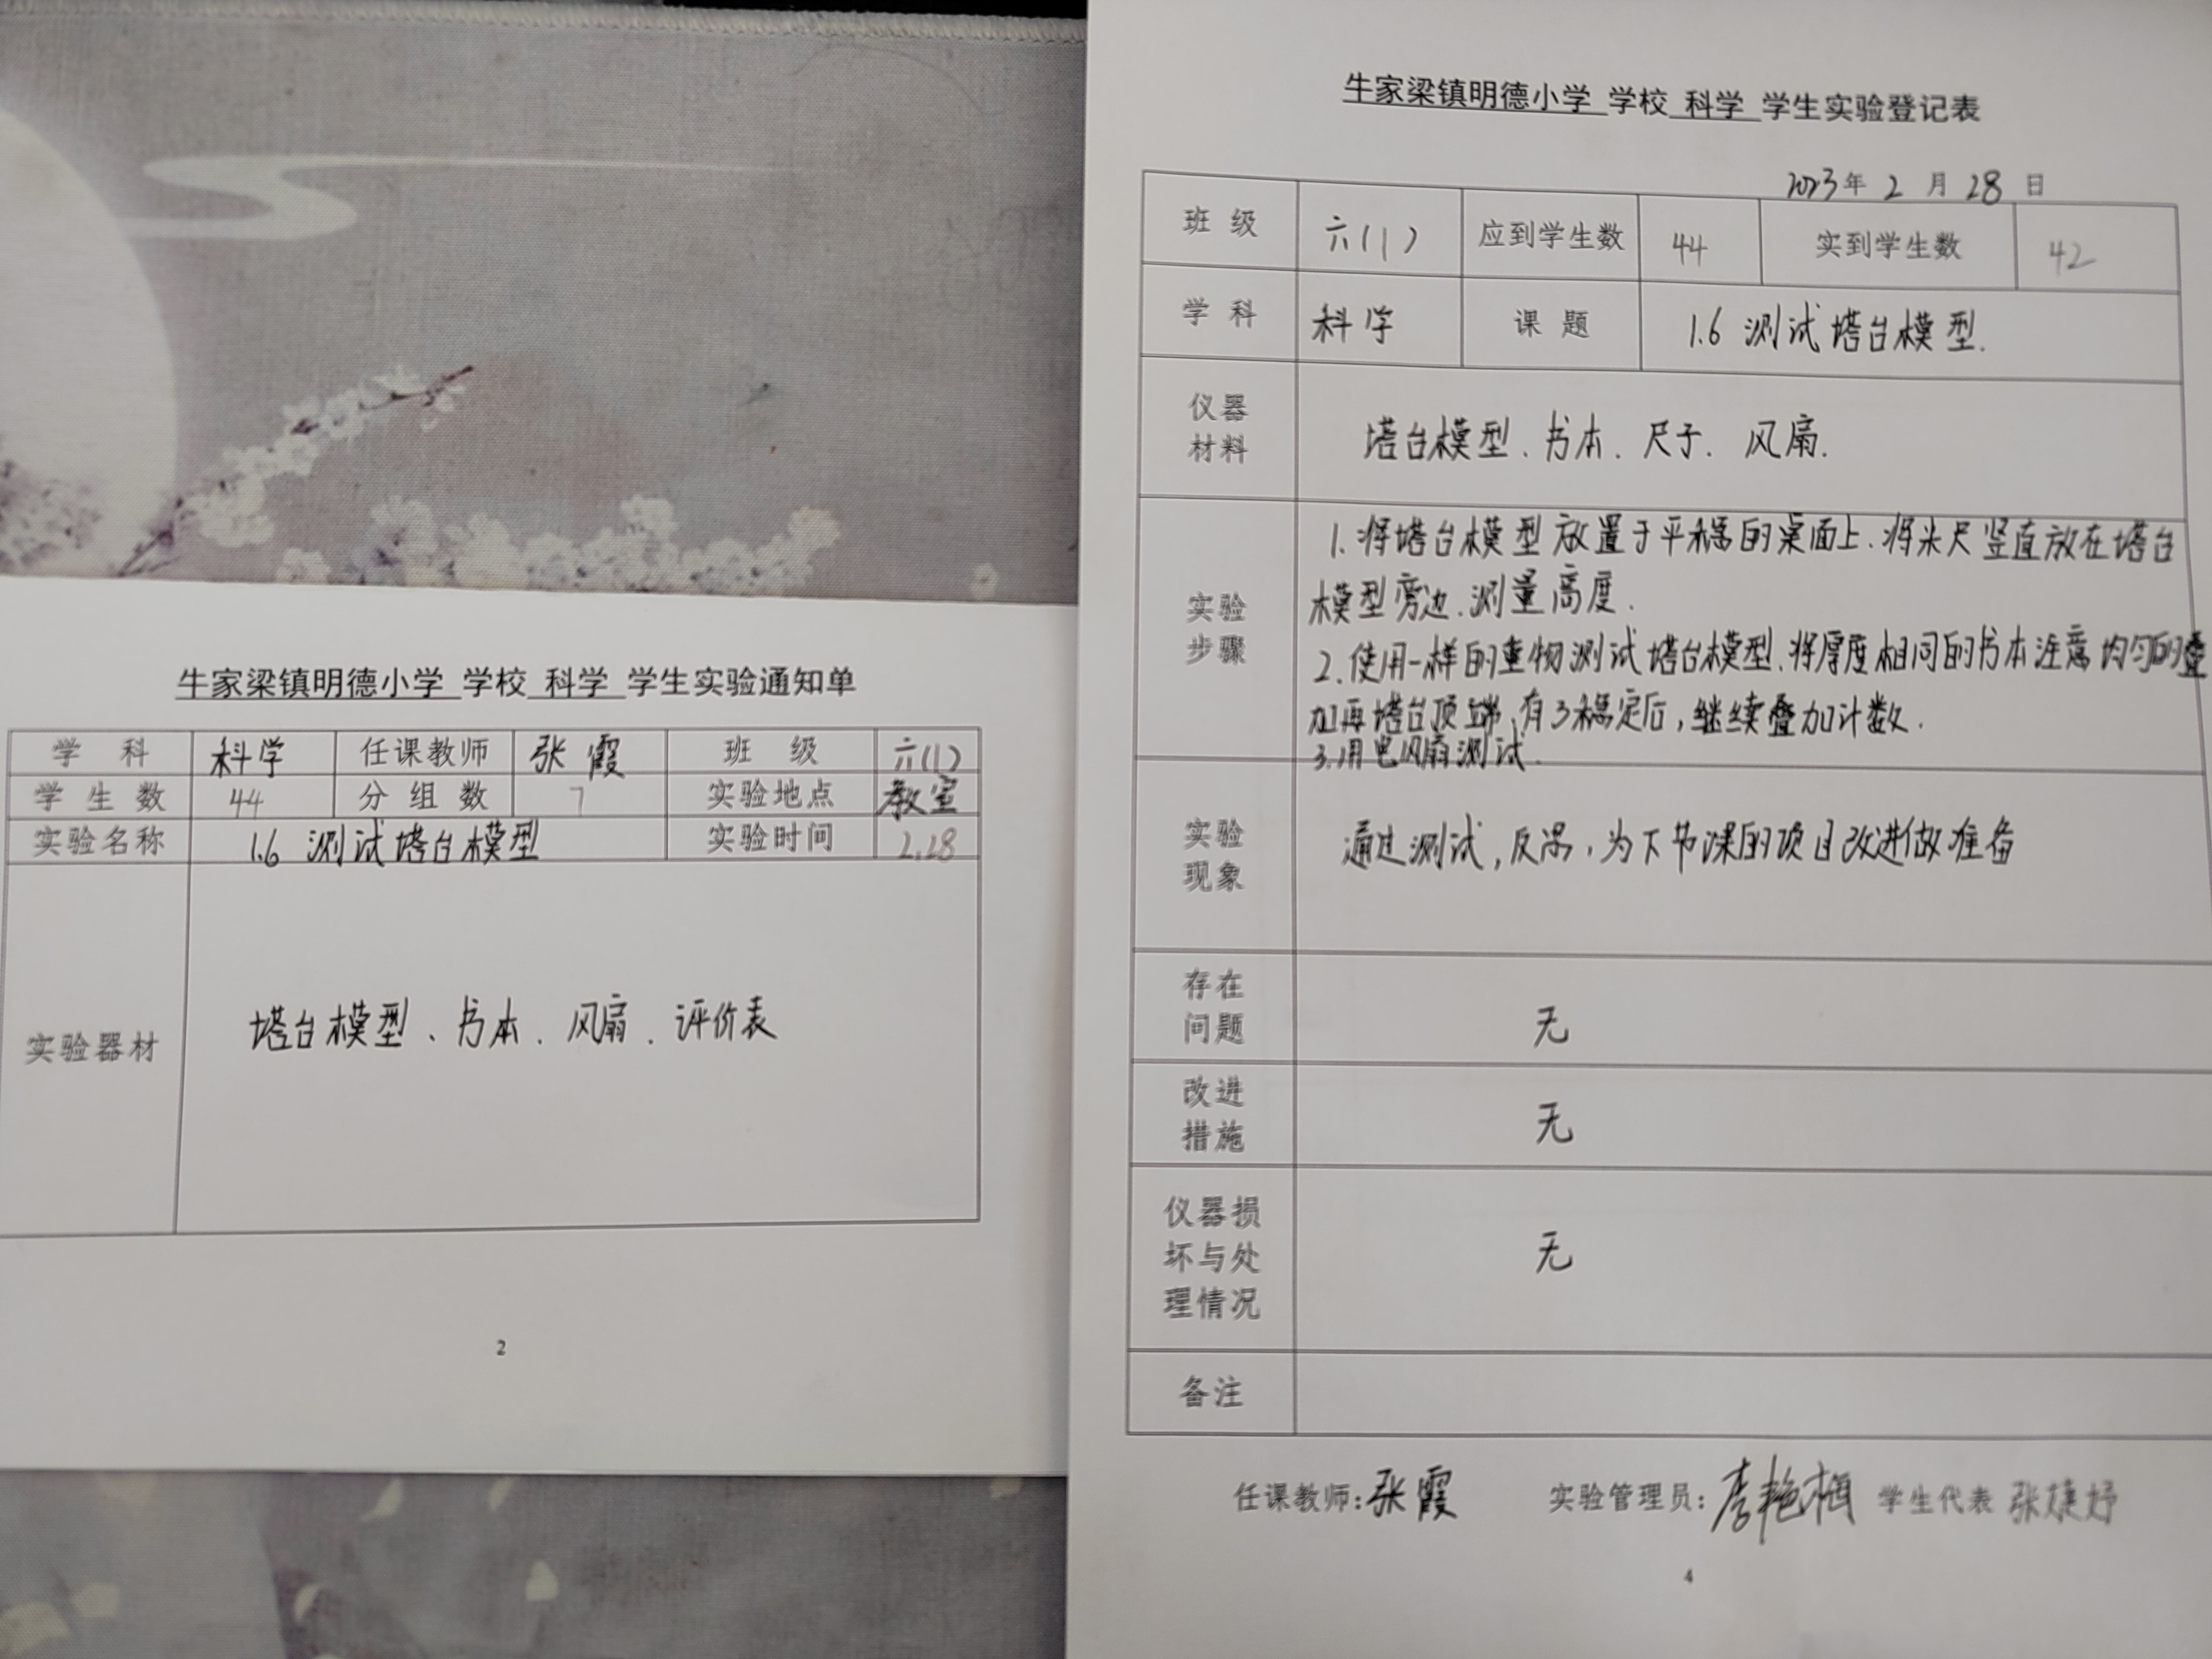 牛家梁镇明德小学 学校 科学 学生实验通知单
学 科 科学 任课教师 张霞 班 级 六(1)
学生数 44 分组数 7 实验地点 教室
实验名称 1.6 测试塔台模型 实验时间 2.28
实验器材 塔台模型、书本、风扇、评价表
2
牛家梁镇明德小学 学校 科学 学生实验登记表
2023年 2 月 28 日
班 级 六(1) 应到学生数 44 实到学生数 42
学 科 科学 课 题 1.6 测试塔台模型.
仪器
材料
塔台模型、书本、尺子、风扇.
实验
步骤
1.将塔台模型放置于平稳的桌面上.将米尺竖直放在塔台
模型旁边.测量高度.
2.使用一样的重物测试塔台模型.将厚度相同的书本注意均匀的叠
加再塔台顶端,有3稳定后,继续叠加计数.
3.用电风扇测试.
实验
现象
通过测试,反思,为下节课的项目改进做准备
存在
问题
无
改进
措施
无
仪器损
坏与处
理情况
无
备注
任课教师:张霞 实验管理员:李艳梅 学生代表 张婕妤
4